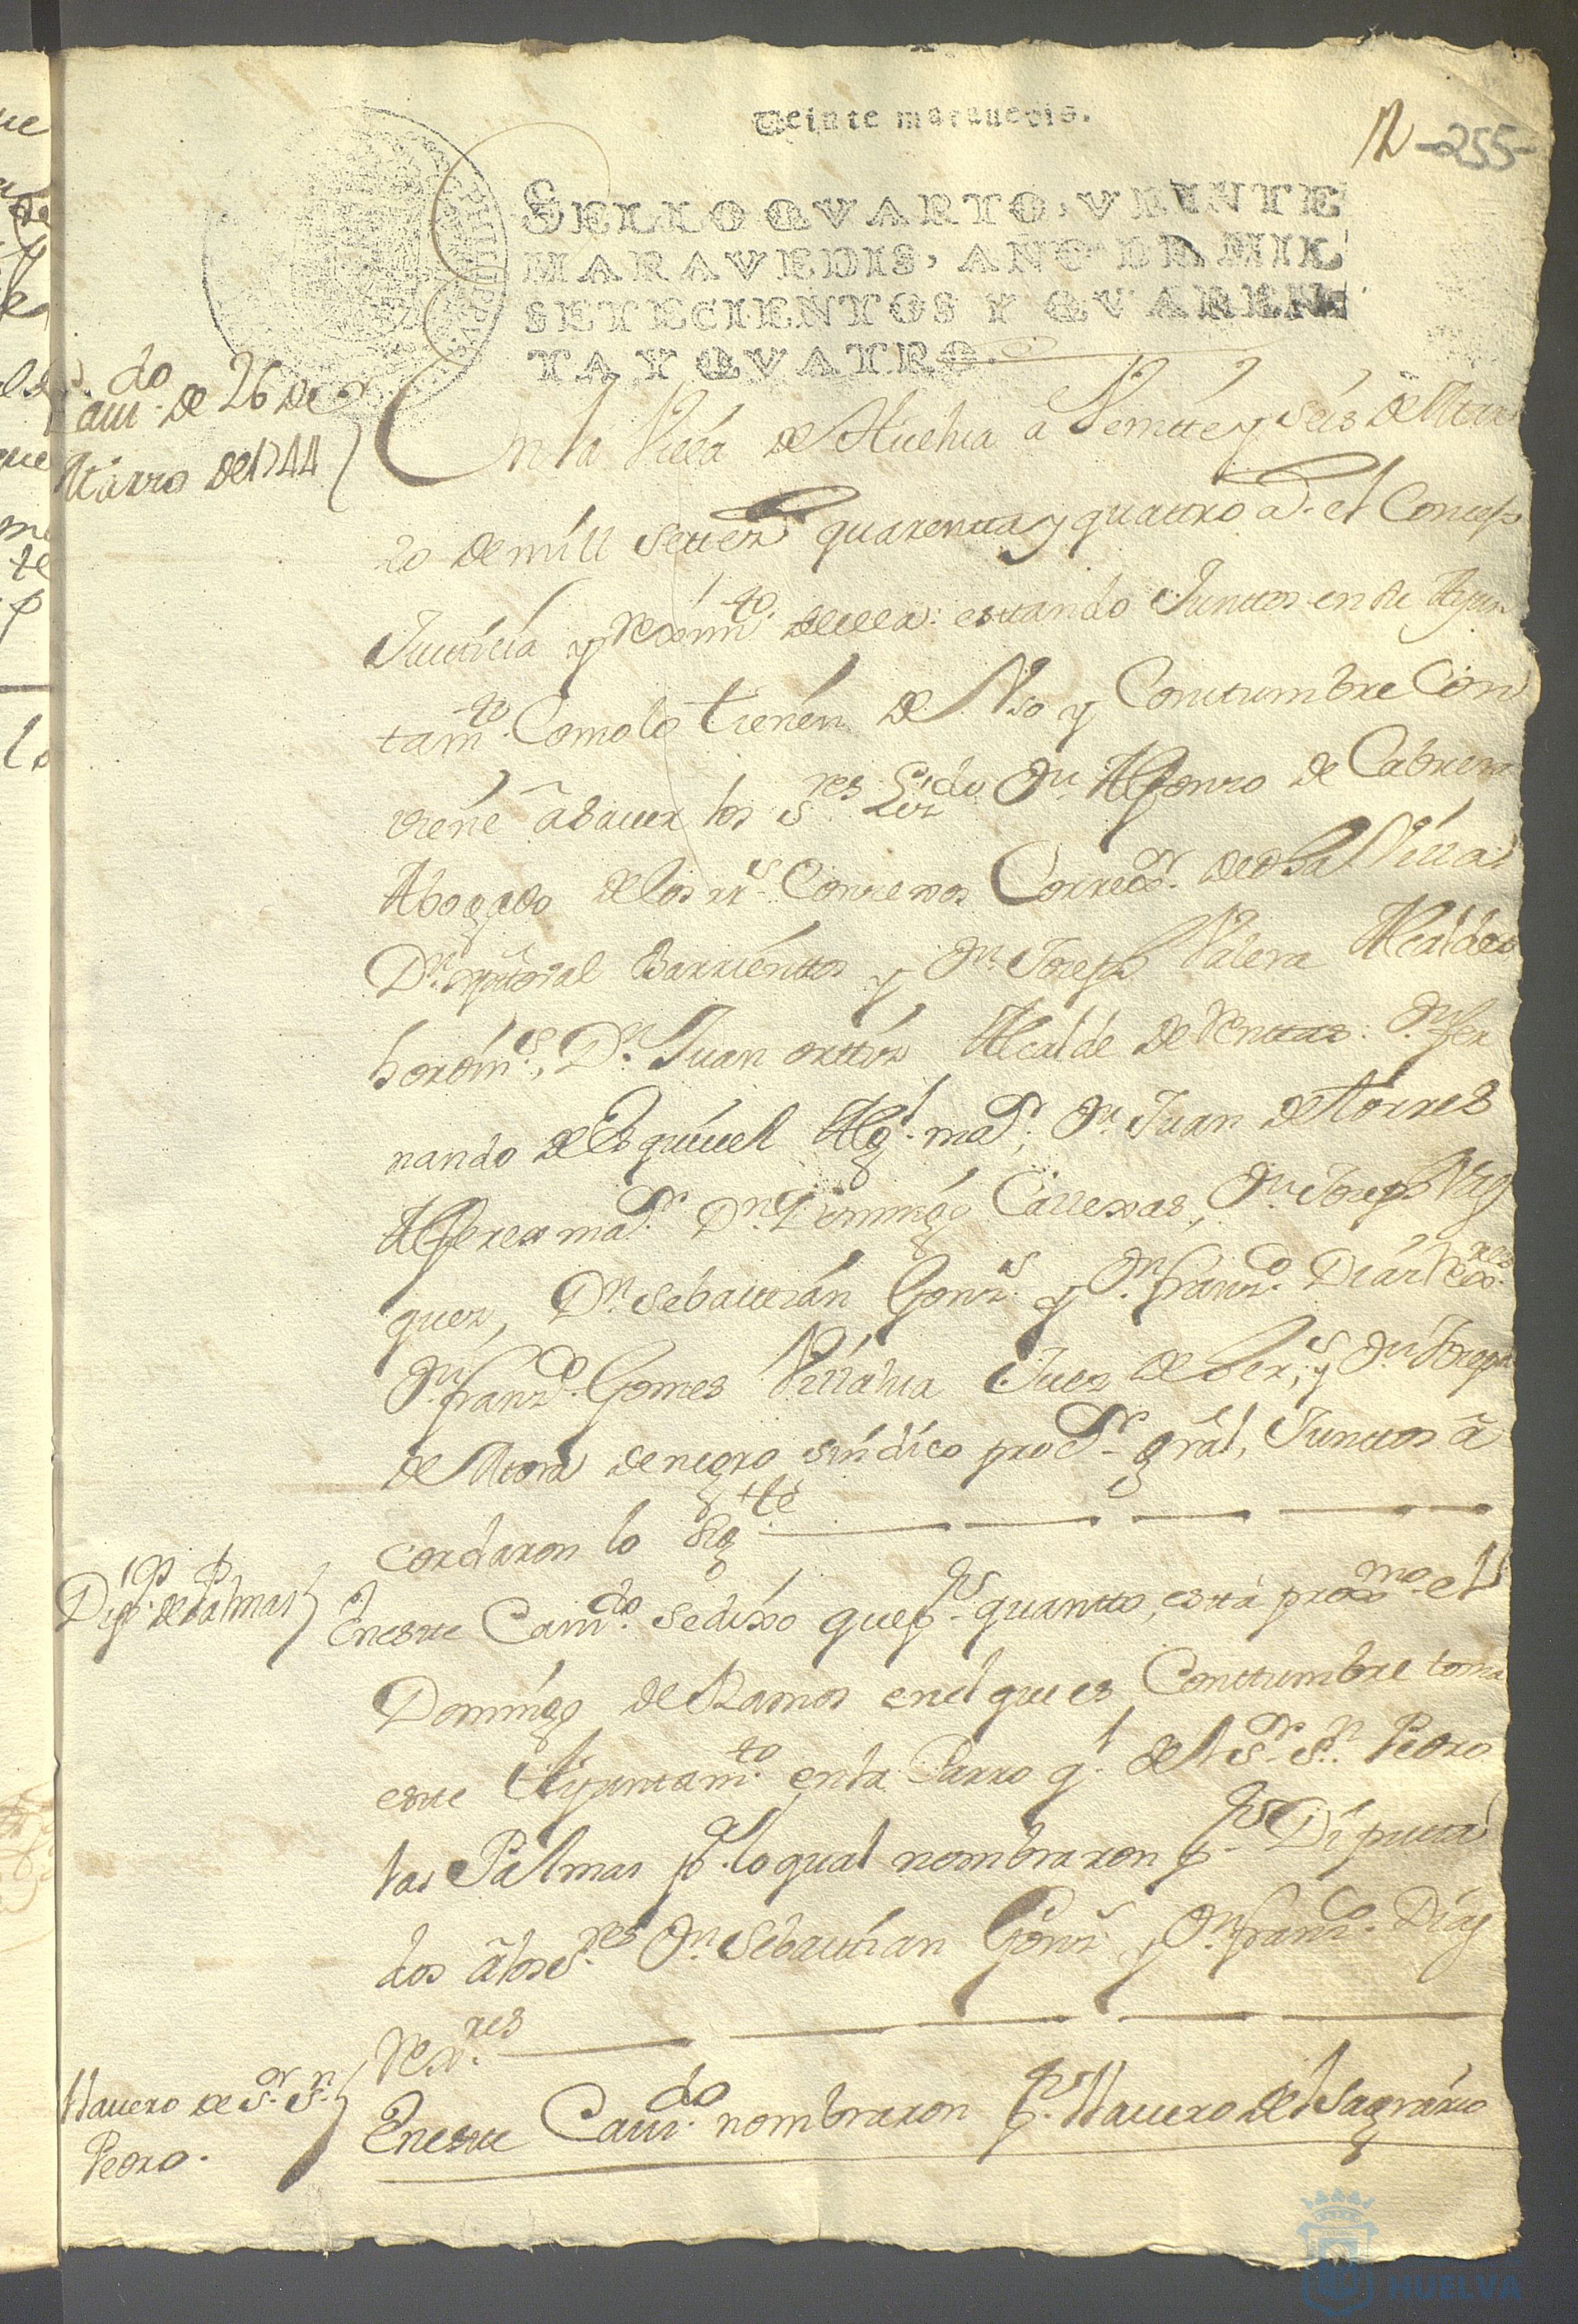 Veinte maravedis.
12 -255-
SELLO QVARTO, VEINTE
MARAVEDIS, AÑO DE MIL
SETECIENTOS Y QVAREN
TA Y QVATRO.
Cavi.do de 26 de
Marzo de 1744
En la Villa de Huelva a Veintte y seis de Mar
zo de mill settez.s quarentta y quattro a.s el Conzejo
Justticia y Reximi.to de ella: esttando Junttos en su Ayun
tam.to Como lo tienen de Vso y Costtumbre Com
biene â Sauer los S.res Liz.do D.n Alfonso de Cabrera
Abogado de los rr.s Consexos Correx.or de dha Villa
D.n Xptoval Barrienttos y D.n Joseph Valera Alcaldes
hordin.s, D.n Juan orttiz Alcalde de Renttas: D.n fer
nando de Esquivel Alg.l ma.or; D.n Juan de Torres
Alferez ma.or D.n Domingo Callexas, D.n Joseph Vaz
quez, D.n Sebasttian Gonz.s y D.n franz.co Diaz Rex.res
D.n franz.co Gomes Villalva Juez de
de Mora de negro sindico pro.or gräl, Junttos â
cordaron lo Sig.tte
Dip.os de Palmas
En estte Cavi.do se dixo que p.r quantto, estta prox.mo el
Domingo de Ramos en el que es Costtumbre toma
estte Ayuntam.to en la Parroq.l del S.or S.n Pedro
las Palmas p.a lo qual nombraron p.r Diputta
dos â los S.res D.n Sebastian Gonz.s y D.n franz.co Diaz
Rex.res
Llavero de S.or S.n
Pedro.
En estte Cavi.do nombraron p.r Llavero del Sagrario
HUELVA